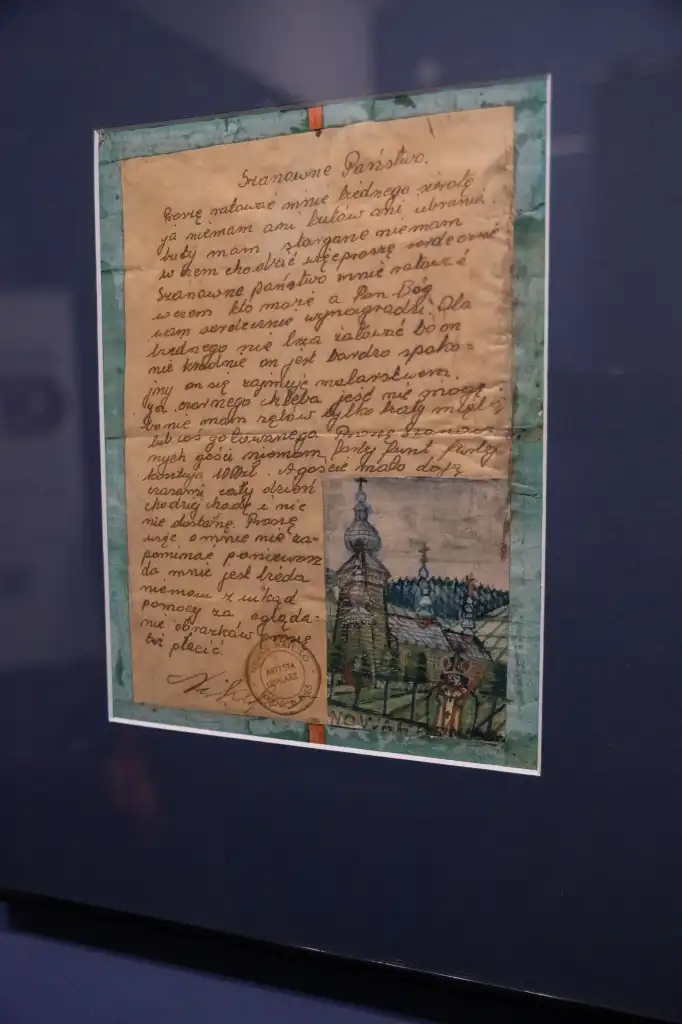 Szanowne Państwo.
Proszę ratować mnie biednego sierotę
ja niemam ani butów ani ubrania
buty mam stargane niemam
w czem chodzić więc proszę serdecznie
Szanowne państwo mnie ratować
w czem kto może a Pan Bóg
wam serdecznie wynogradzi. Dla
biednego nie trza żałować bo on
nie kradnie on jest bardzo spoko=
jny on się zajmuje malarstwem.
ja czarnego chleba jeść nie mogę
bo nie mam zębów tylko biały
lub coś gotowanego Proszę Szanow
nych gości niemam farby funt farby
kosztuje A goście mało dają
czasami cały dzień
chodzę chodzę i nic
nie dostanę. Proszę
więc o mnie nie za=
pominać poniewarz
da mnie jest bida
niemam z nikąd
pomocy za ogląda=
nie obrazków proszę
też płacić.
ARTYSTA
MALARZ
NOWA